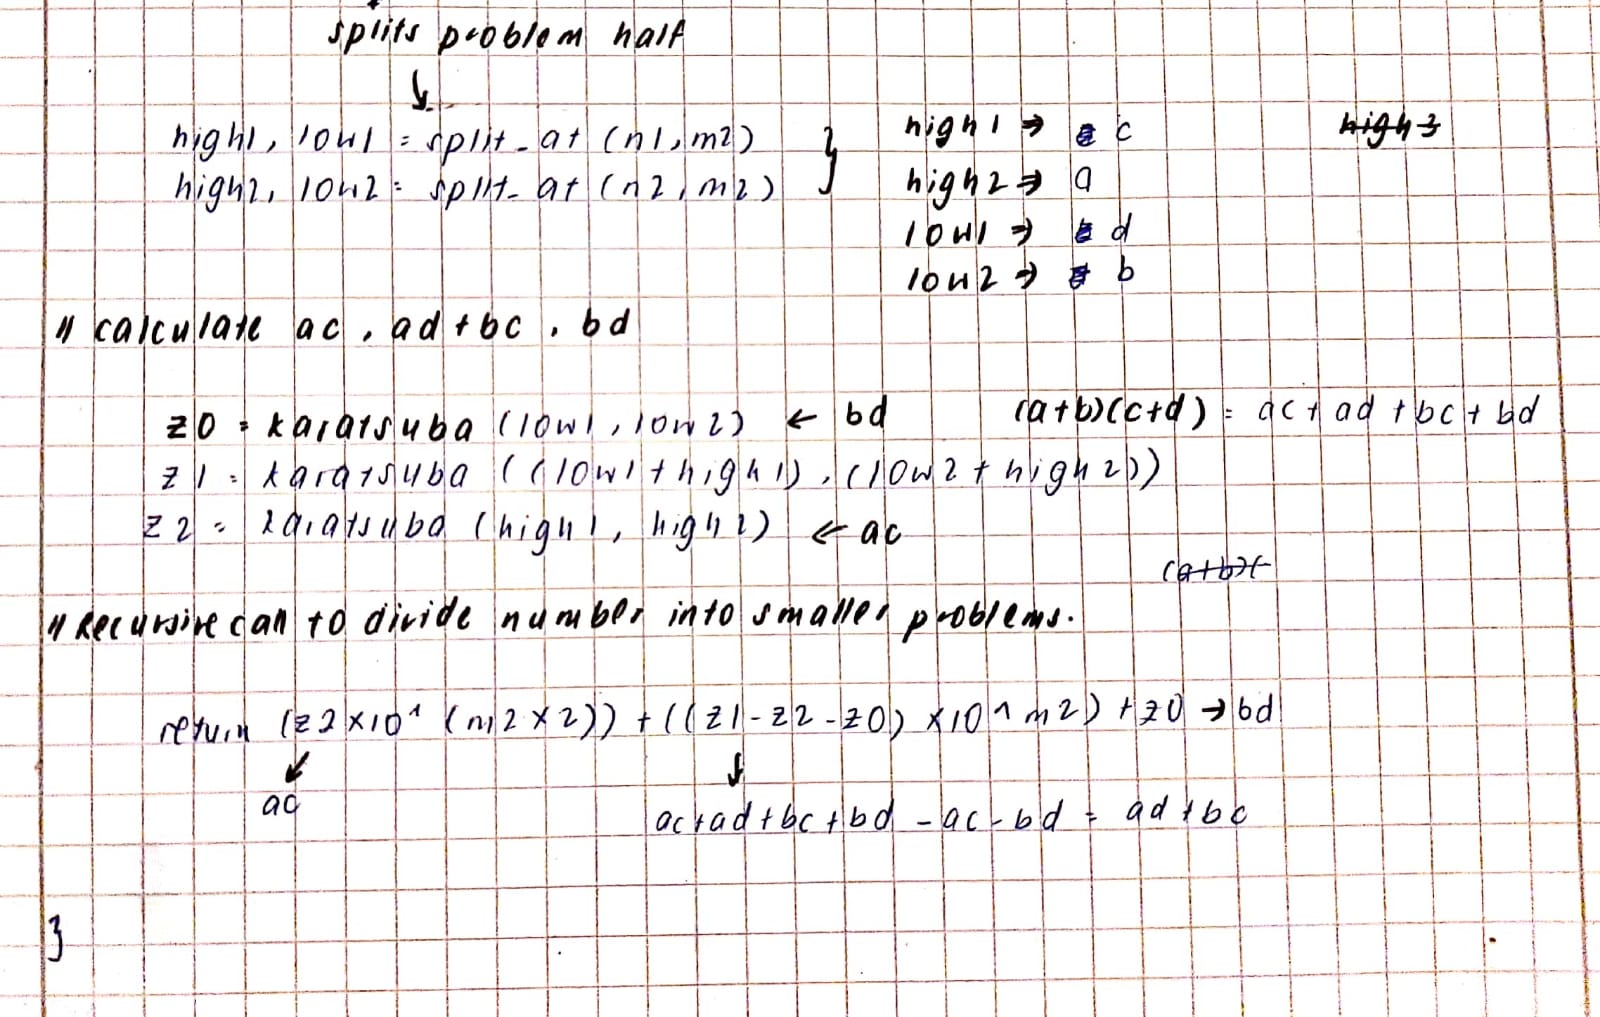 splits problem half
↓
high1, low1 = split_at (n1, m2) } high1 ⇒ c
high2, low2 = split_at (n2, m2) high2 ⇒ a
low1 ⇒ d
low2 ⇒ b
// calculate ac, ad+bc, bd
z0 = karatsuba (low1, low2) ← bd (a+b)(c+d) = ac + ad + bc + bd
z1 = karatsuba ((low1 + high1), (low2 + high2))
z2 = karatsuba (high1, high2) ← ac
// Recursive call to divide number into smaller problems.
return (z2 × 10 ^ (m2 × 2)) + ((z1 - z2 - z0) × 10 ^ m2) + z0 → bd
ac ac+ad+bc+bd - ac - bd = ad + bc
}